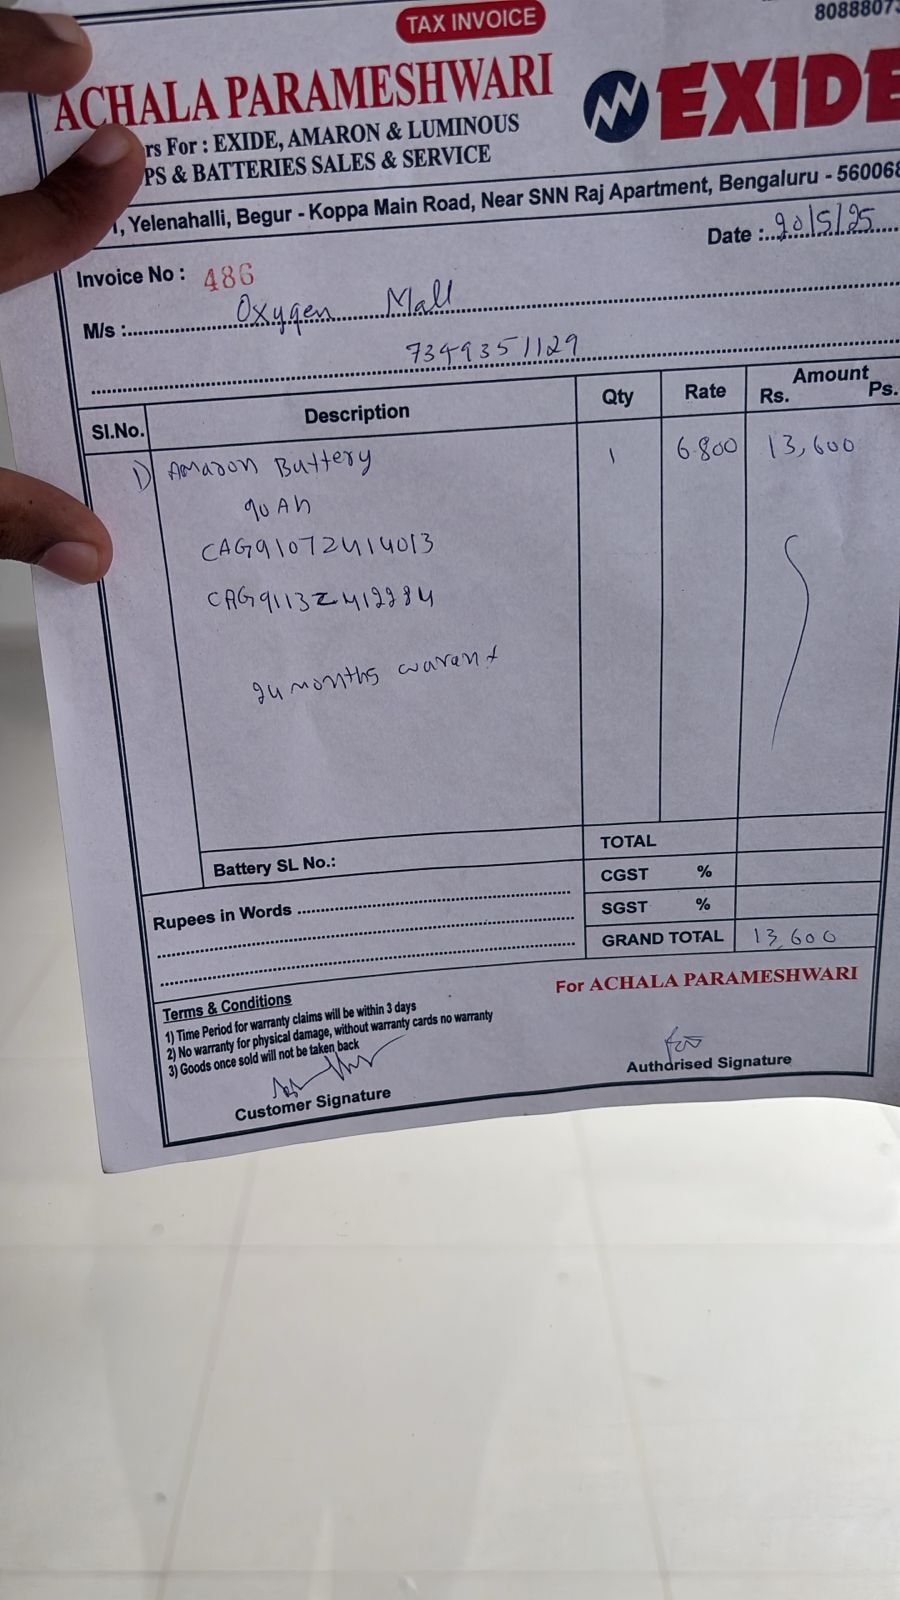 TAX INVOICE
8088807
ACHALA PARAMESHWARI
EXIDE
rs For : EXIDE, AMARON & LUMINOUS
PS & BATTERIES SALES & SERVICE
1, Yelenahalli, Begur - Koppa Main Road, Near SNN Raj Apartment, Bengaluru - 560068
Date : 20/5/25
Invoice No : 486
M/s : Oxygen Mall
7349351129
Sl.No. Description Qty Rate Amount Rs. Ps.
1) Amaron Battery 1 6.800 13,600
90 Ah
CAG91072414013
CAG9113Z412284
24 months warent
Battery SL No.:
TOTAL
CGST %
Rupees in Words
SGST %
GRAND TOTAL 13,600
For ACHALA PARAMESHWARI
Terms & Conditions
1) Time Period for warranty claims will be within 3 days
2) No warranty for physical damage, without warranty cards no warranty
3) Goods once sold will not be taken back
Customer Signature
Authorised Signature